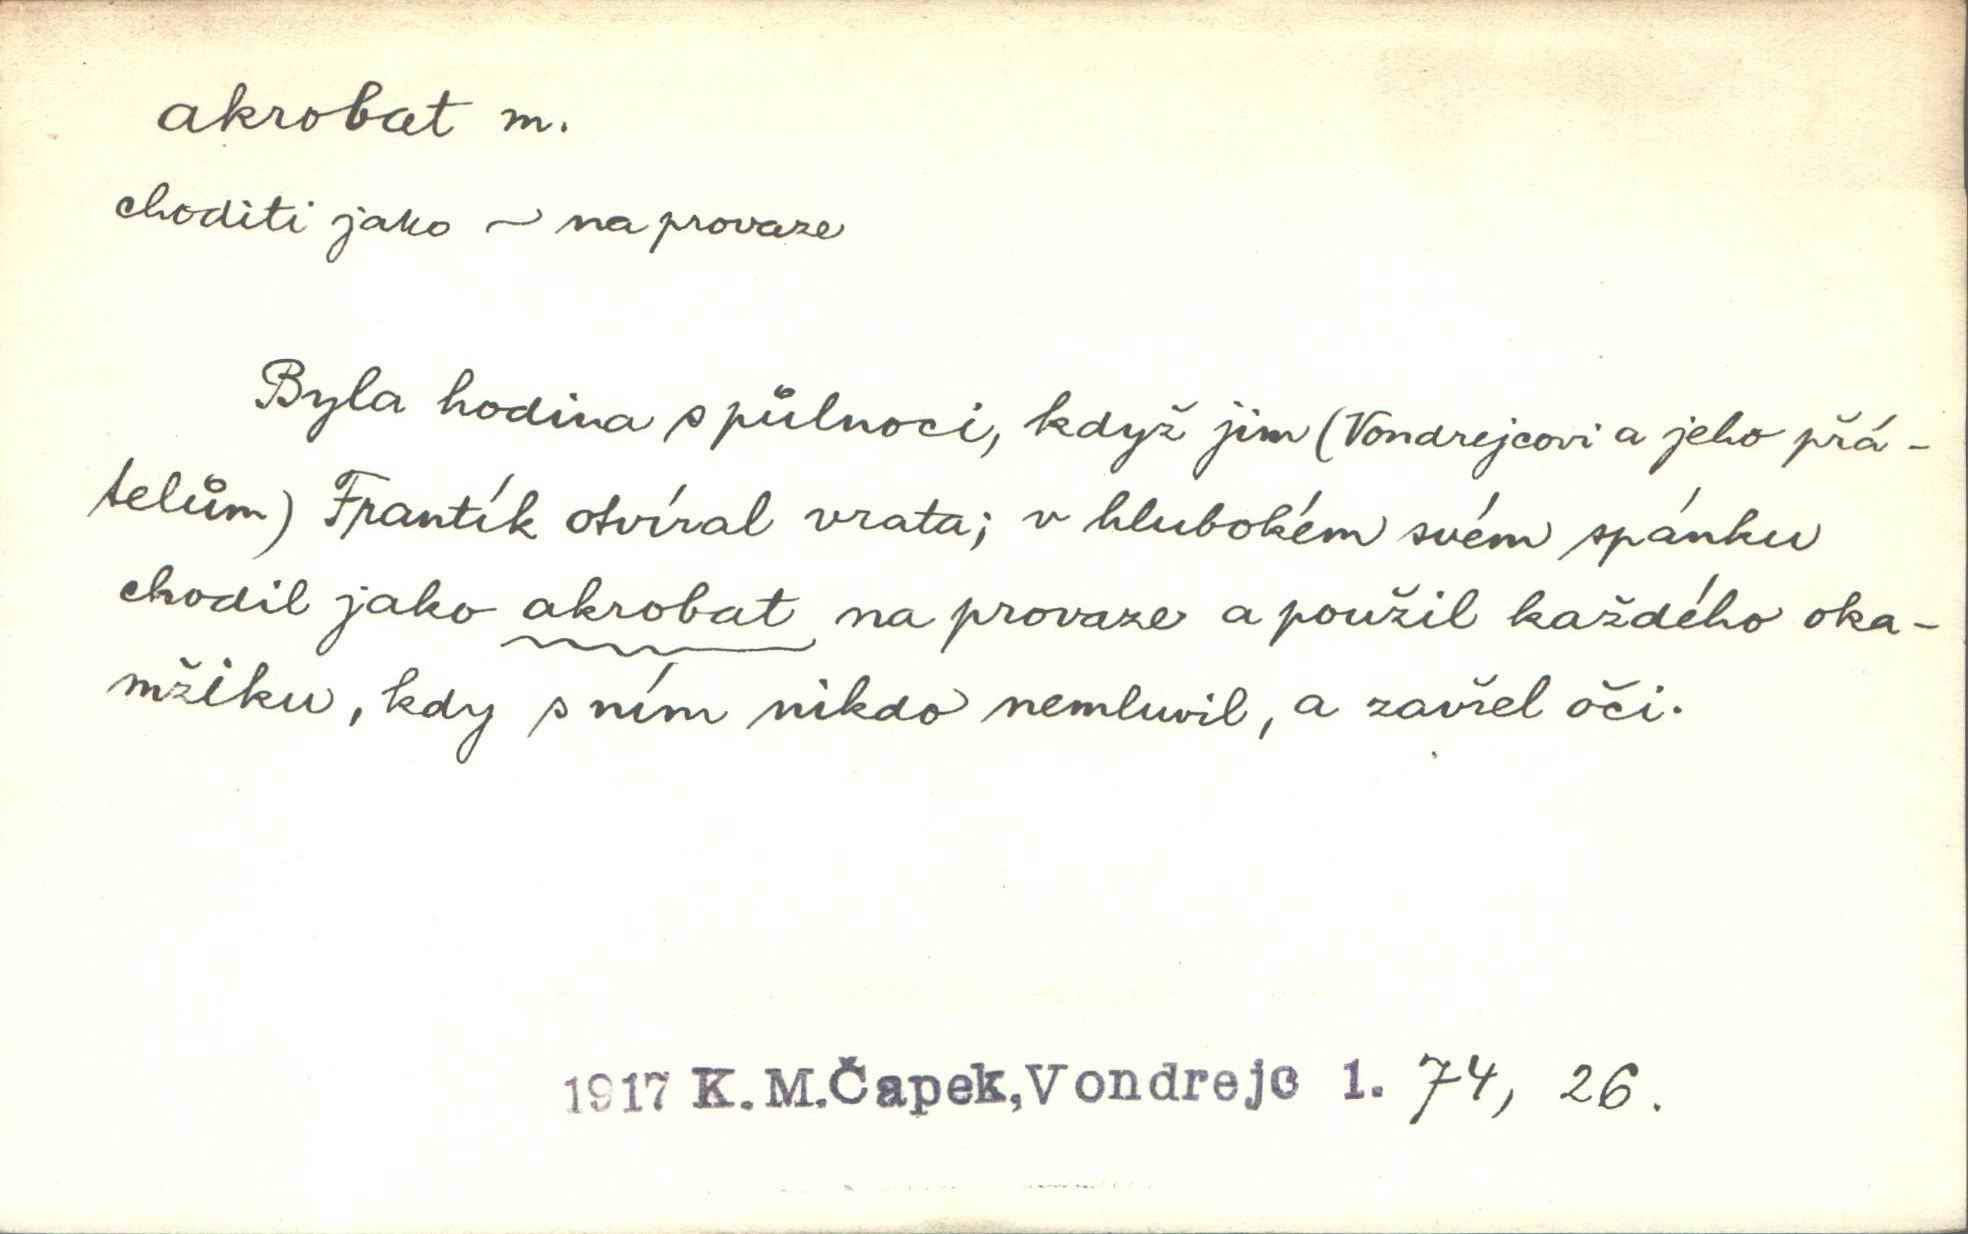 akrobat m.
choditi jako ~ na provaze
Byla hodina s půlnoci, když jim (Vondrejcovi a jeho přá-
telům) Frantík otvíral vrata; v hlubokém svém spánku
chodil jako akrobat na provaze a použil každého oka-
mžiku, kdy s ním nikdo nemluvil, a zavřel oči.
1917 K. M. Čapek, Vondrejc 1. 74, 26.